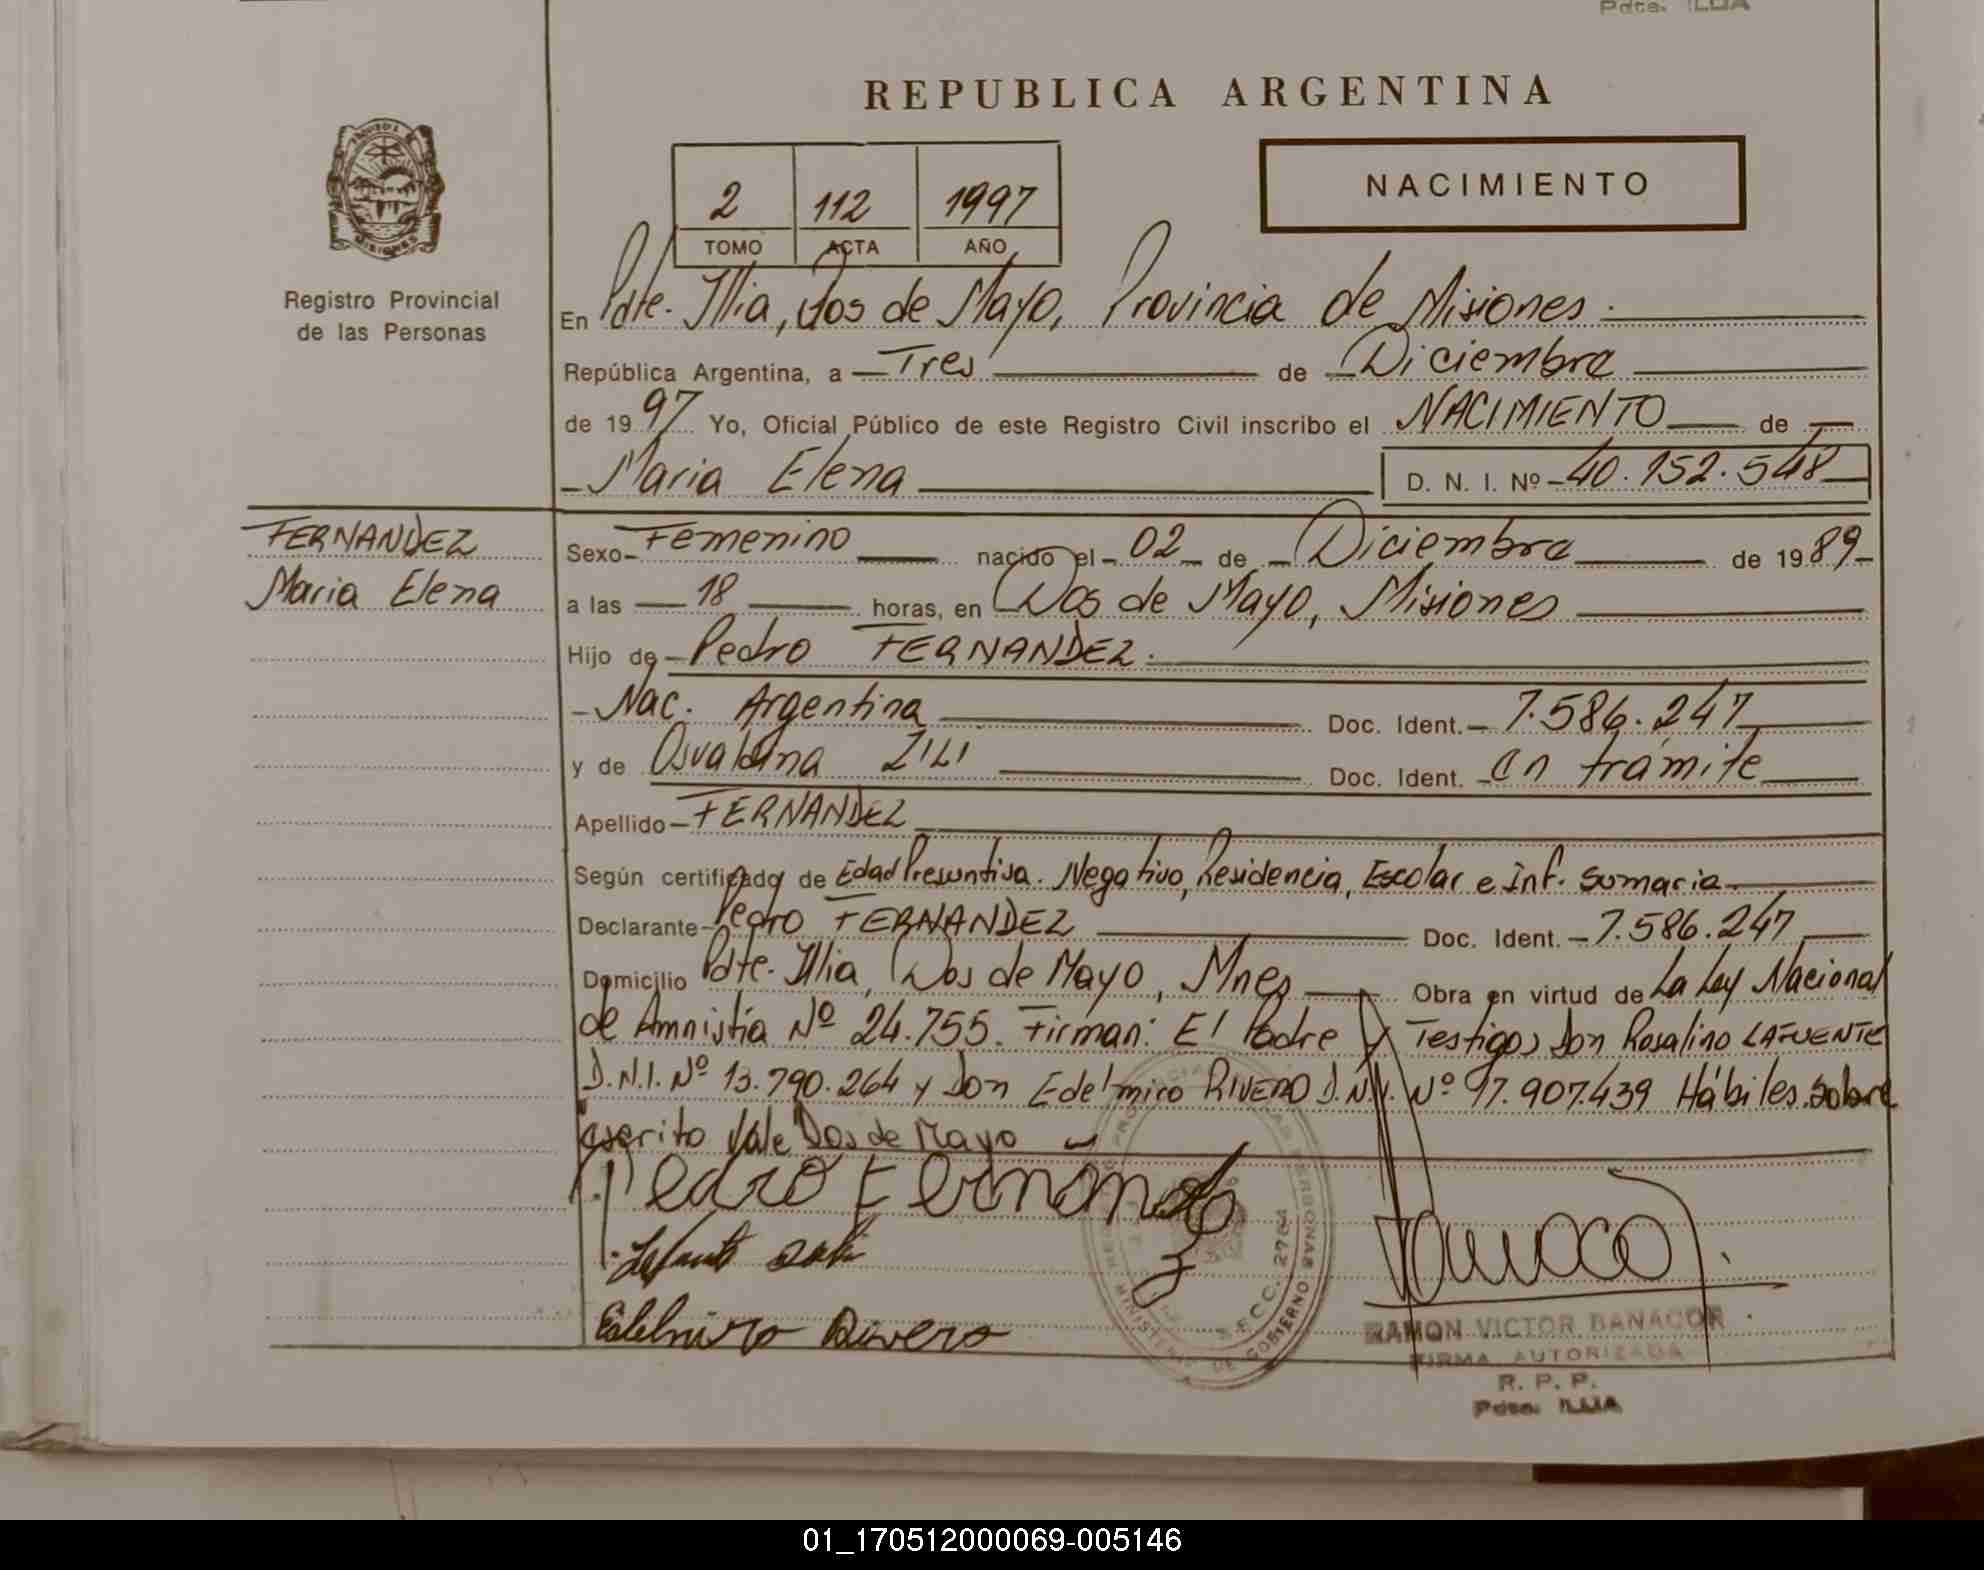 Pdte. ILLIA
REPUBLICA ARGENTINA
NACIMIENTO
2 112 1997
TOMO ACTA AÑO
MISIONES
Registro Provincial
de las Personas
En Pdte. Illia, Dos de Mayo, Provincia de Misiones.
República Argentina, a Tres de Diciembre
de 1997 Yo, Oficial Público de este Registro Civil inscribo el NACIMIENTO de
Maria Elena D. N. I. Nº 40.152.548
FERNANDEZ
Maria Elena
Sexo Femenino nacido el 02 de Diciembre de 1989
a las 18 horas, en Dos de Mayo, Misiones
Hijo de Pedro FERNANDEZ.
Nac. Argentina Doc. Ident. 7.586.247
y de Osvaldina ZILI Doc. Ident. en trámite
Apellido FERNANDEZ
Según certificado de Edad Presuntiva. Negativo, Residencia, Escolar e Inf. sumaria
Declarante Pedro FERNANDEZ Doc. Ident. 7.586.247
Domicilio Pdte. Illia, Dos de Mayo, Mnes Obra en virtud de La Ley Nacional
de Amnistía Nº 24.755. Firman: El Padre y Testigos Don Rosalino LAFUENTE
D.N.I. Nº 13.790.264 y Don Edelmiro RIVERO D.N.I. Nº 17.907.439 Hábiles. Sobre
escrito Vale "Dos de Mayo
Pedro Fernández
Edelmiro Rivero
MINISTERIO DE GOBIERNO
SECC. 2764
RAMON VICTOR BANACOR
FIRMA AUTORIZADA
R. P. P.
Pdte. ILLIA
01_170512000069-005146